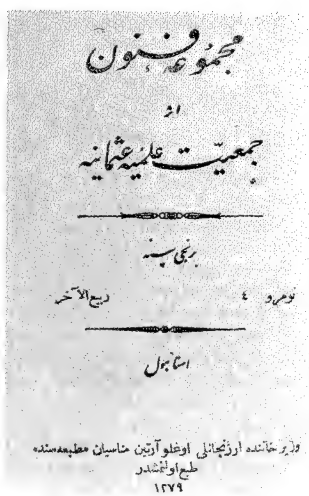 مجموعهٔ فنون
اثر
جمعیت علمیهٔ عثمانیه
برنجی سنه
نومرو ٤ ربیع الآخر
استانبول
وزیر خاننده ارزنجانلی اوغلو آرتین مناسیان مطبعه‌سنده
طبع اولنمشدر
١٢٧٩